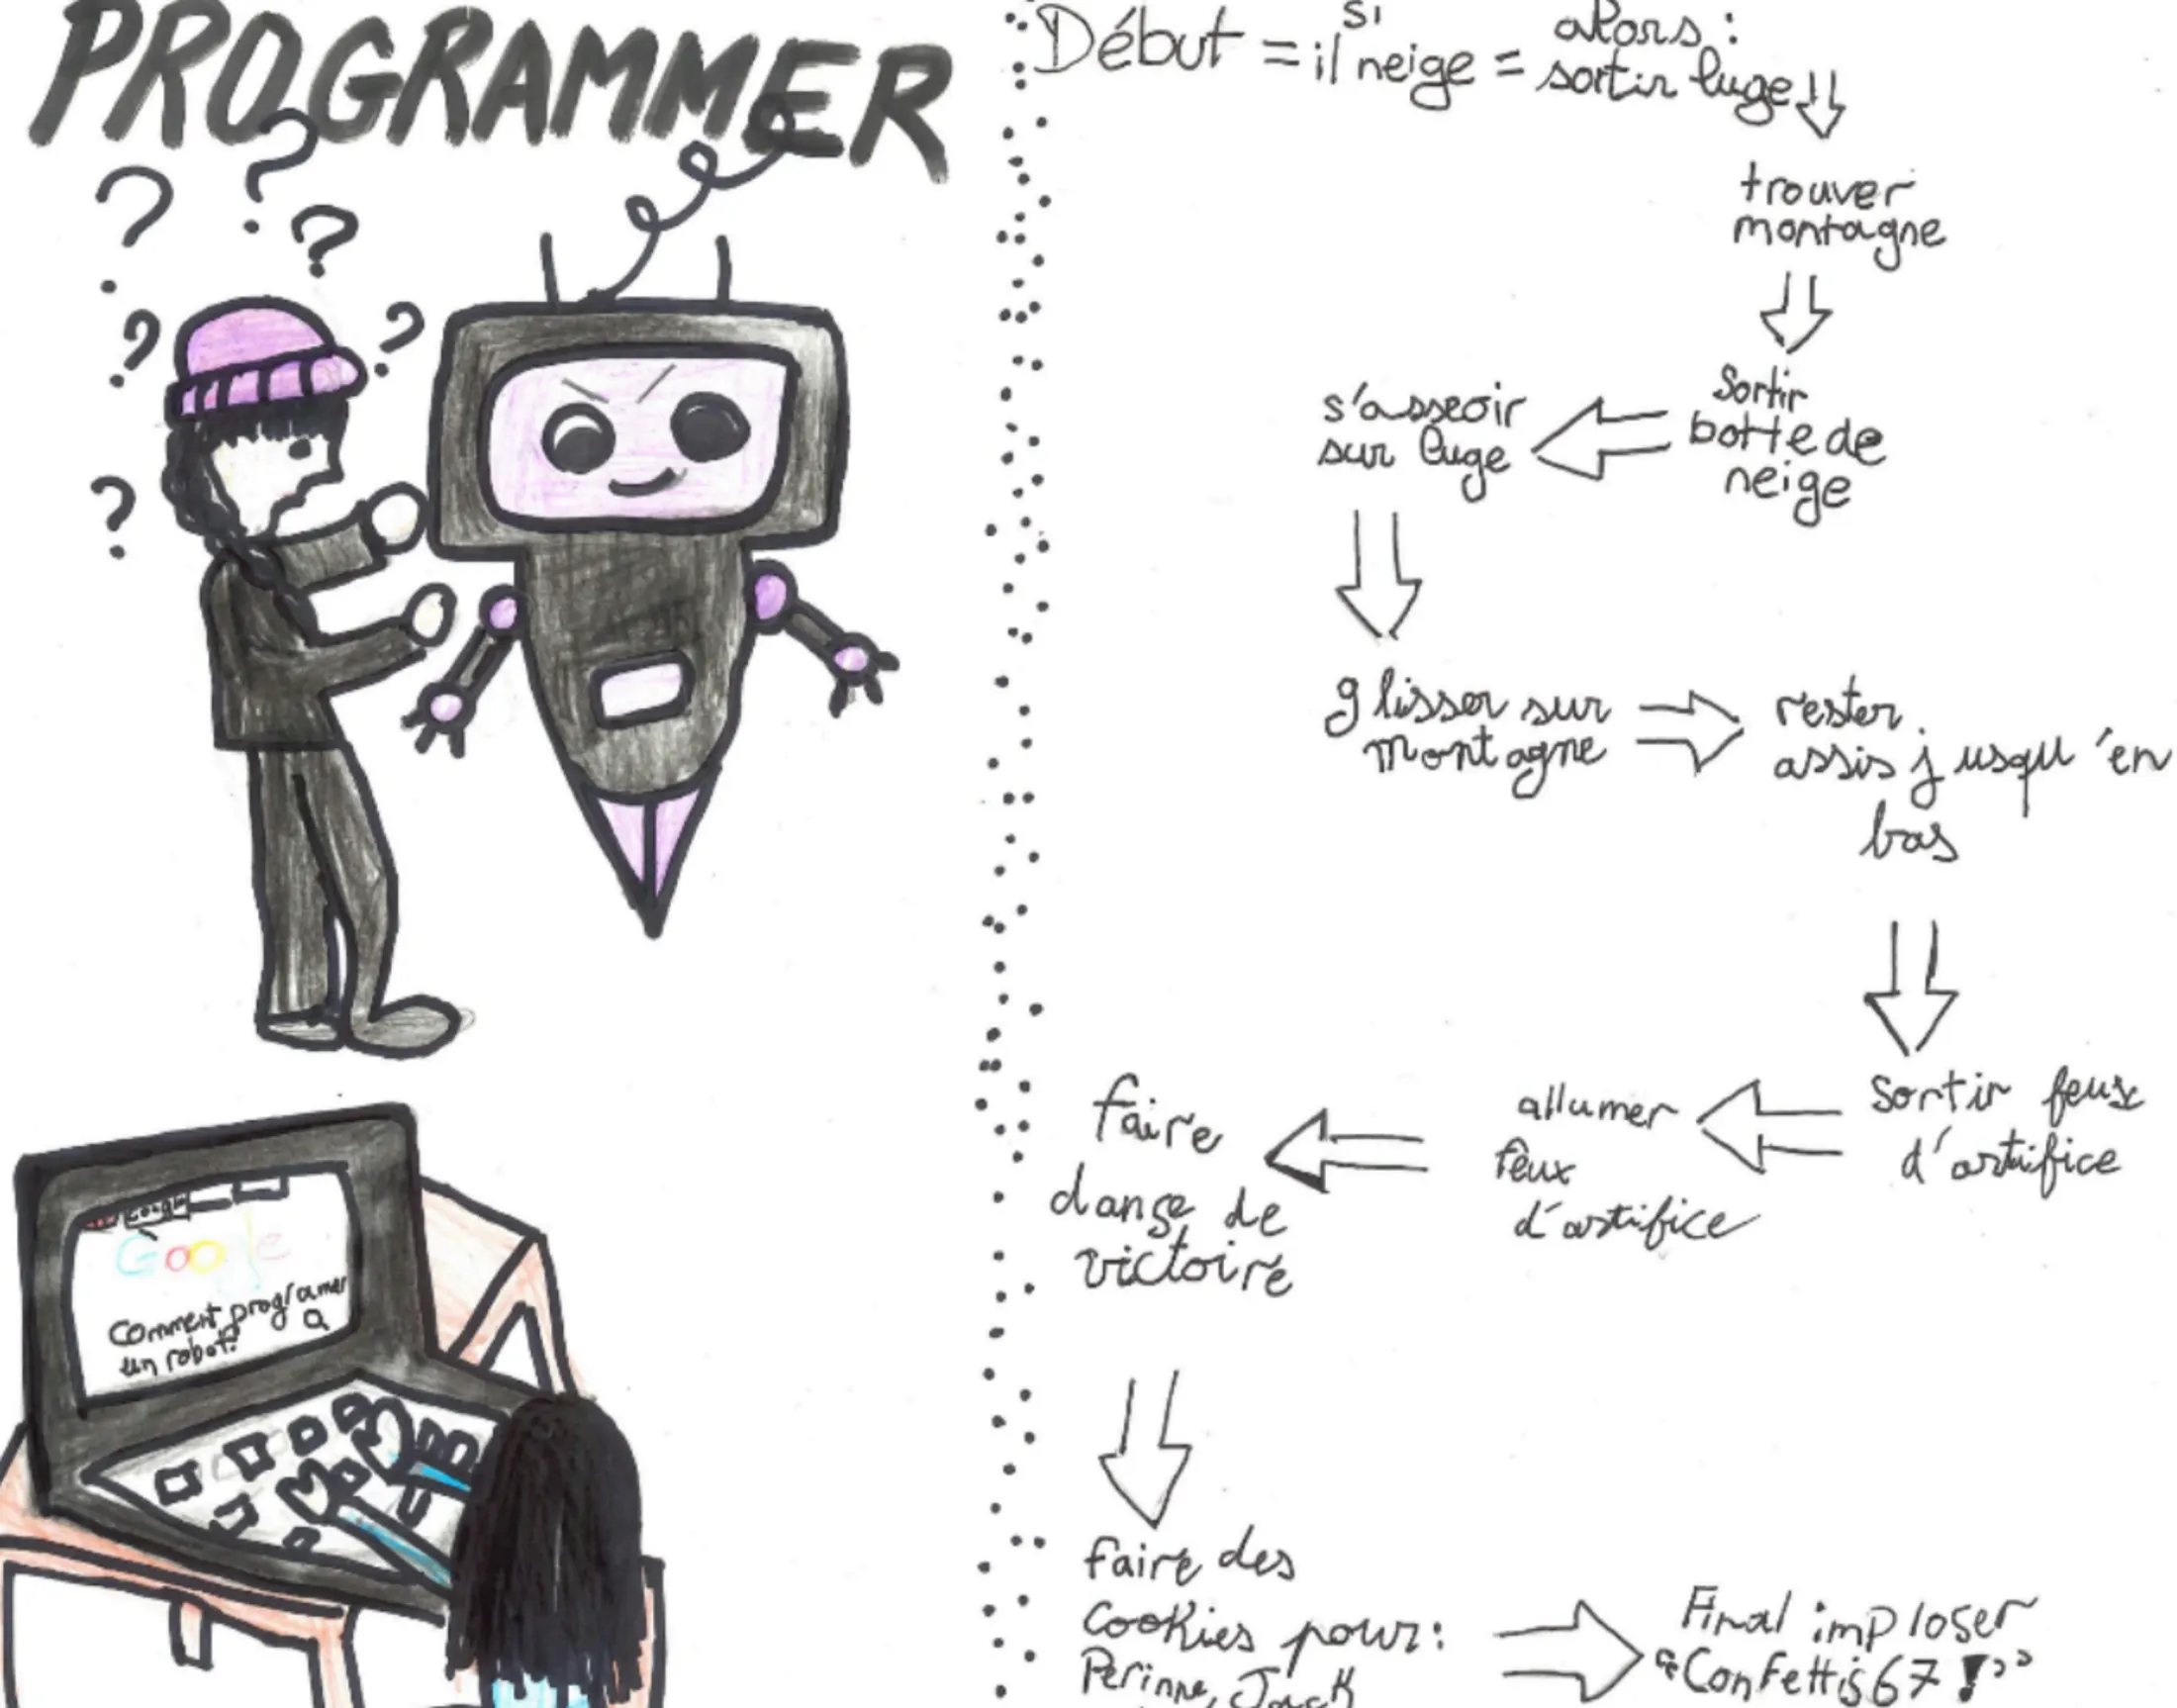 PROGRAMMER
? ? ?
? ?
?
Google
Comment programer
un robot?
Début = si il neige = alors :
sortir luge
trouver
montagne
sortir
botte de
neige
s'asseoir
sur luge
glisser sur
montagne
rester
assis jusqu'en
bas
sortir feux
d'artifice
allumer
feux
d'artifice
faire
danse de
victoire
faire des
cookies pour:
Perinne, Jack
Final imploser
“Confettis 67 !”